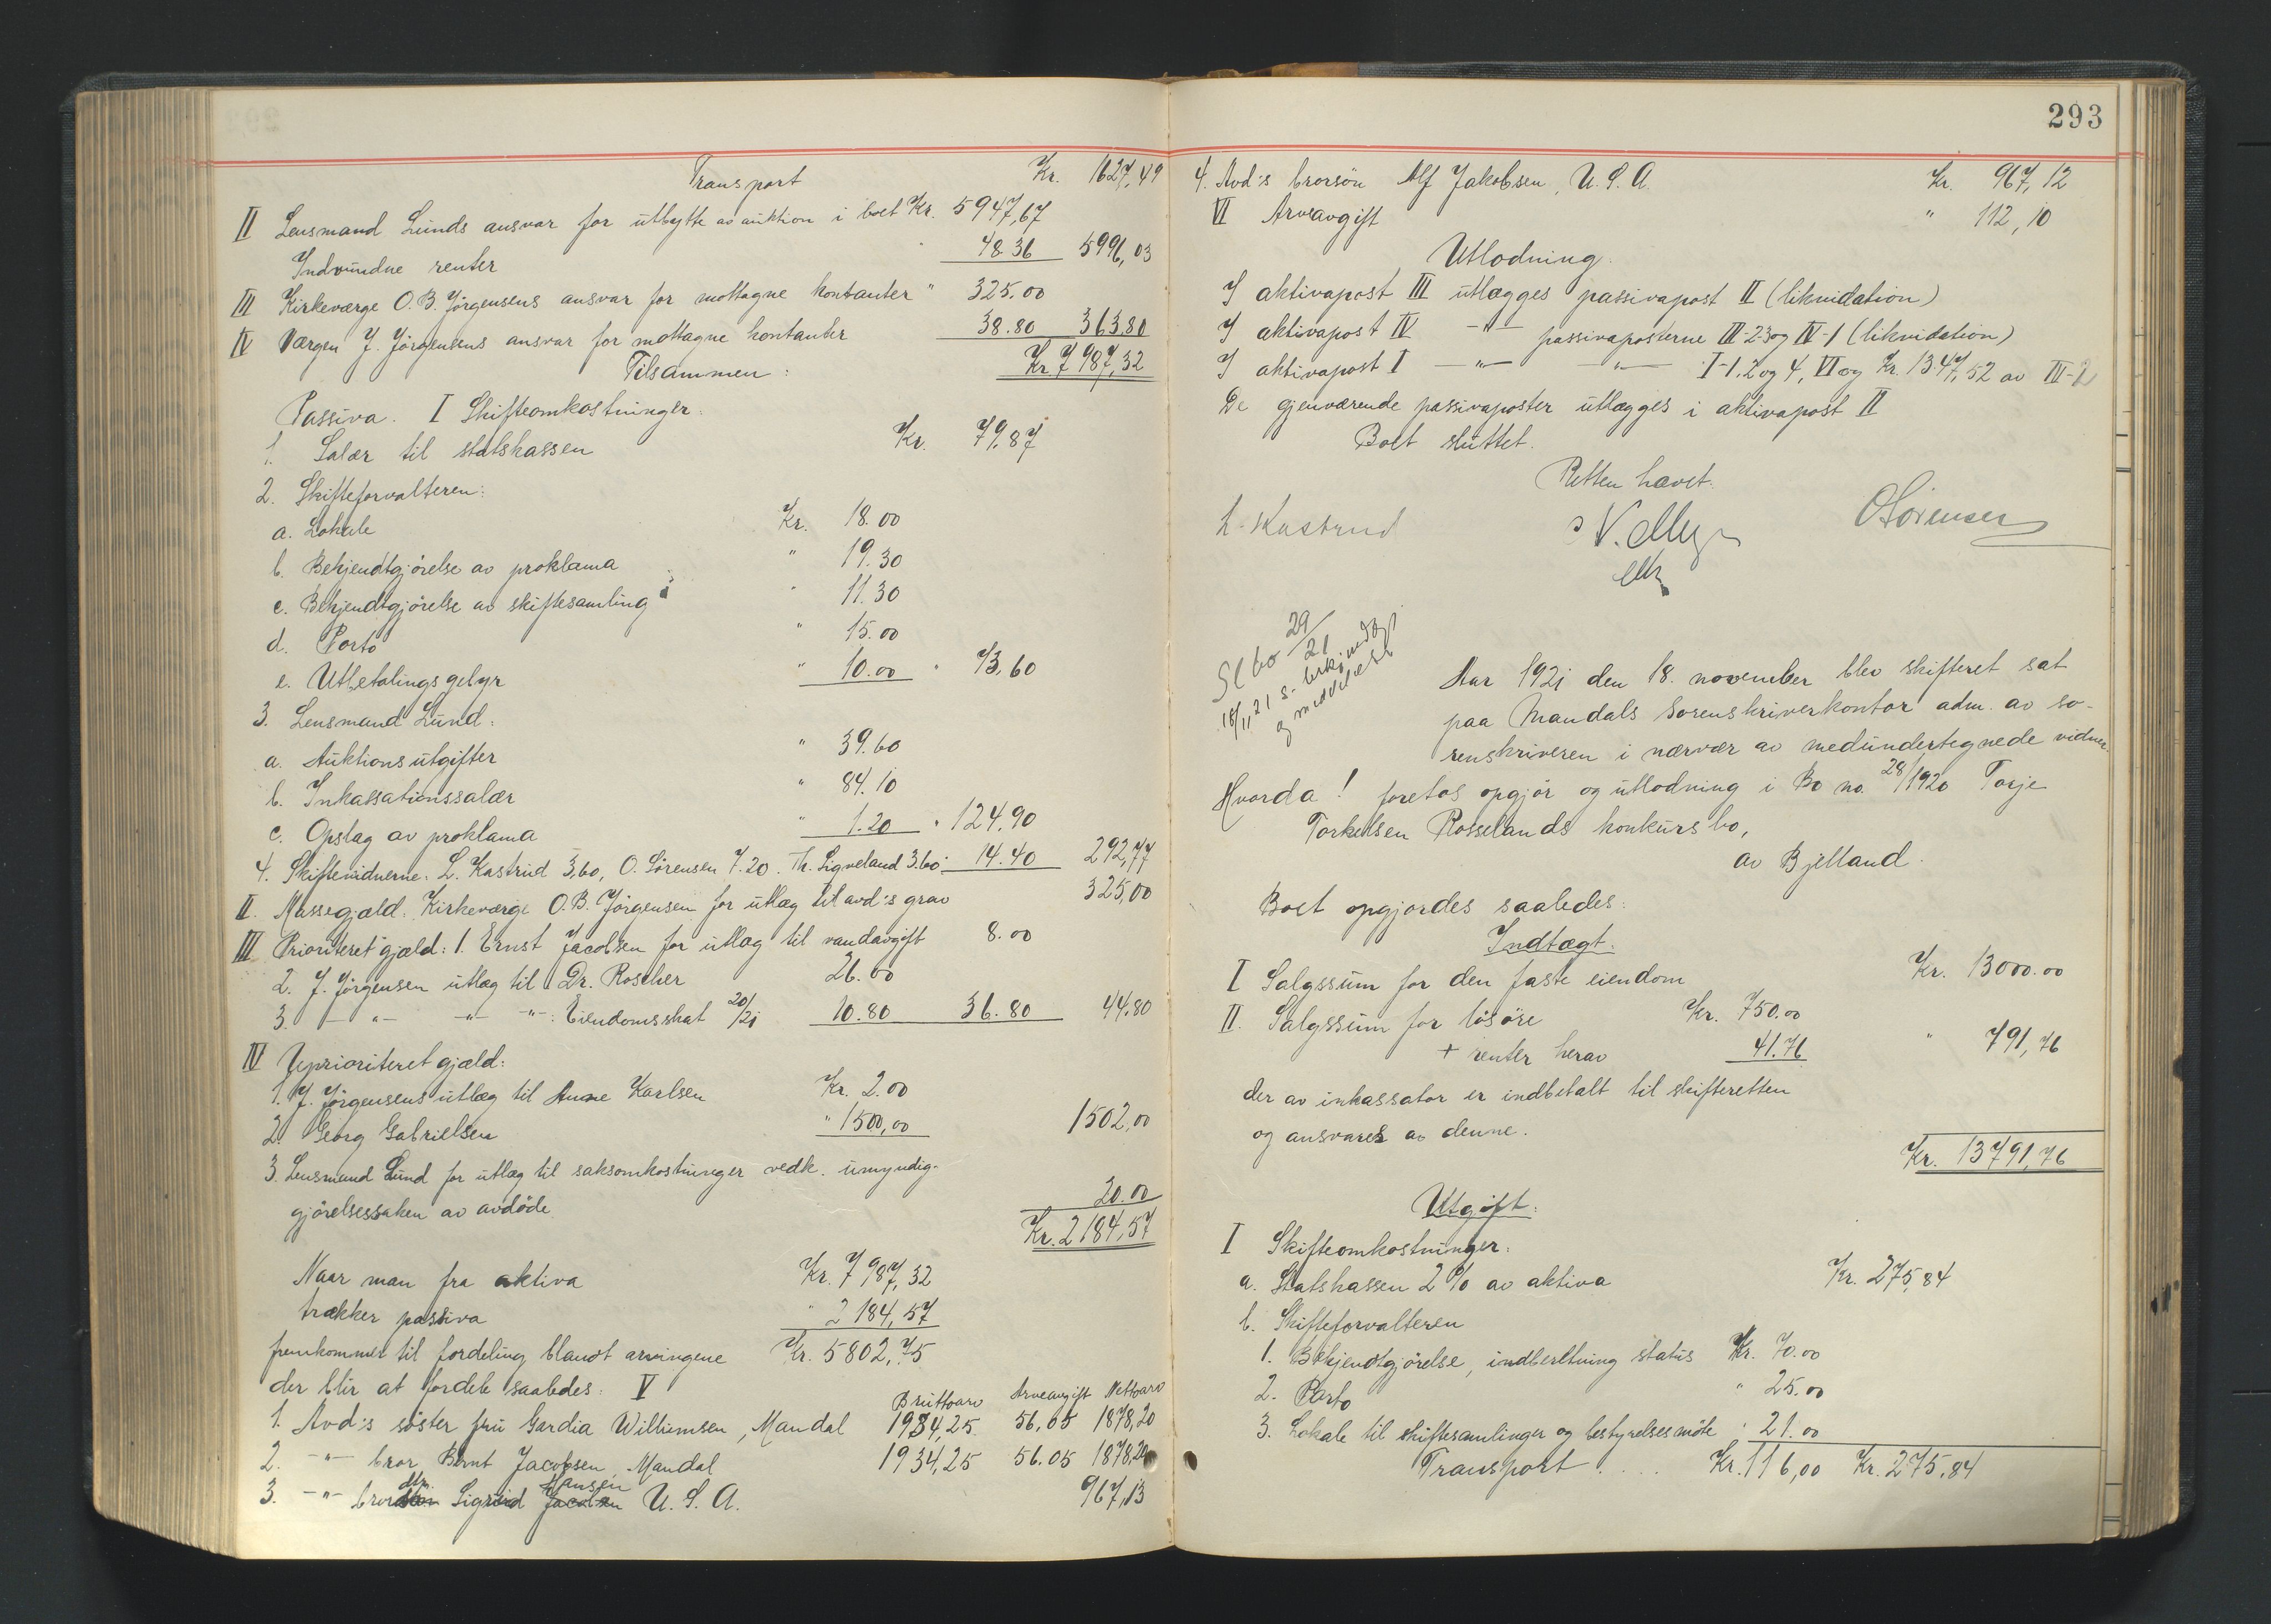 Transport Kr. 1627,49
II Lensmand Lunds ansvar for utbytte av auktion i boet Kr. 5947,67
Indvundne renter 48.36 5996,03
III Kirkeværge O. B. Jörgensens ansvar for mottagne kontanter " 325.00
IV Værgen J. Jörgensens ansvar for mottagne kontanter 38.80 363,80
Tilsammen: Kr 7987,32
Passiva. I Skifteomkostninger:
1. Salær til statskassen Kr. 79,87
2. Skifteforvalteren:
a. Lokale Kr. 18.00
b. Bekjendtgjörelse av proklama " 19.30
c. Bekjendtgjörelse av skiftesamling " 11.30
d. Porto " 15.00
e. Utbetalingsgebyr " 10.00 " 73,60
3. Lensmand Lund:
a. Auktionsutgifter " 39.60
b. Inkassationssalær " 84.10
c. Opslag av proklama " 1.20 " 124,90
4. Skiftevidnerne. L. Kastrud 3,60, O. Sörensen 7.20. Th. Sigveland 3.60: 14.40 292,77
II. Massegjæld. Kirkeværge O. B. Jörgensen for utlæg til avd:s grav 325,00
III Prioriteret gjæld: 1. Ernst Jacobsen for utlæg til vandavgift 8.00
2. J. Jörgensen utlæg til Dr. Roscher 26.00
3. -"- -"- -"-: Eiendomsskat 20/21 10.80 36.80 44,80
IV Uprioriteret gjæld:
1. J. Jörgensens utlæg til Anne Karlsen Kr. 2.00
2. Georg Gabrielsen " 1500,00 1502,00
3. Lensmand Lund for utlæg til saksomkostninger vedk. umyndig-
gjörelsessaken av avdöde 20.00
Kr. 2184,57
Naar man fra aktiva Kr. 7987,32
trækker passiva " 2184,57
fremkommer til fordeling blandt arvingene Kr. 5802,75
der blir at fordele saaledes: V Bruttoarv Arveavgift Nettoarv
1. Avd:s söster fru Gardia Williumsen, Mandal 1934,25 56,05 1878,20
2. -"- bror Bernt Jacobsen, Mandal 1934,25 56.05 1878,20
3. -"- brordtr. Sigrid Hansen U. S. A. 967,13
293
4. Avd:s brorsön Alf Jakobsen, U. S. A. Kr. 967,12
VI Arveavgift " 112,10
Utlodning.
I aktivapost III utlægges passivapost II (likvidation)
I aktivapost IV -"- passivaposterne III-2-3 og IV-1 (likvidation)
I aktivapost I -"- -"- I-1, 2 og 4, VI og Kr. 1347,52 av IV-2
De gjenværende passivaposter utlægges i aktivapost II
Boet sluttet.
Retten hævet.
L. Kastrud O. Sörensen
29/21
18/11 21 s. bekjendtgj
og meddelelse
Aar 1921 den 18. november blev skifteret sat
paa Mandals Sorenskriverkontor adm. av so-
renskriveren i nærvær av medundertegnede vidner
Hvorda! foretas opgjör og utlodning i Bo no. 28/1920 Torje
Torkelsen Rosselands konkursbo,
av Bjelland.
Boet opgjordes saaledes:
Indtægt.
I Salgssum for den faste eiendom Kr. 13000.00
II. Salgssum for lösöre Kr. 750.00
+ renter herav 41.76 " 791,76
der av inkassator er indbetalt til skifteretten
og ansvares av denne.
Kr. 13791,76
Utgift:
I Skifteomkostninger:
a. Statskassen 2 % av aktiva Kr. 275,84
b. Skifteforvalteren
1. Bekjendtgjörelse, indberetning status Kr. 70.00
2. Porto " 25.00
3. Lokale til skiftesamlinger og bestyrelsesmöte " 21.00
Transport . . . . Kr. 116,00 Kr. 275,84